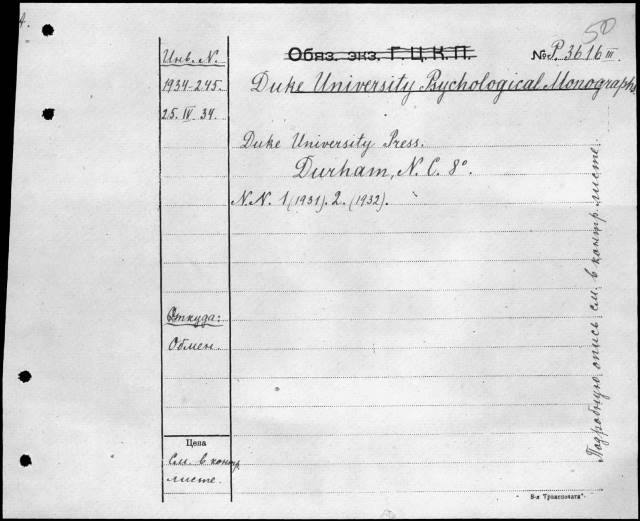 50
Инв. N.
Обяз. экз. Г.Ц.К.П.
№ P. 3616 III
1934-245.
Duke University Psychological Monographs
25. IV. 34.
Duke University Press.
Durham, N. C. 8°.
N.N. 1 (1931). 2. (1932).
Откуда:
Обмен.
Цена
См. в контр.
листе.
Подробную опись см. в контр. листе.
8-я "Транспечати"